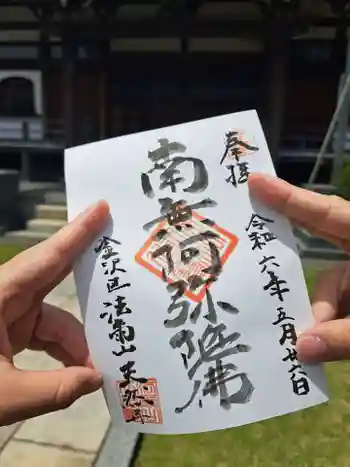 奉拝
令和六年五月廿六日
南無阿弥陀佛
金沢区 法爾山 天然寺